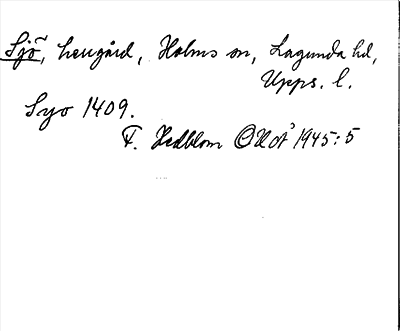 Sjö, herrgård, Holms sn, Lagunda hd,
Upps. l.
Syo 1409.
F. Hedblom OUOÅ 1945:5